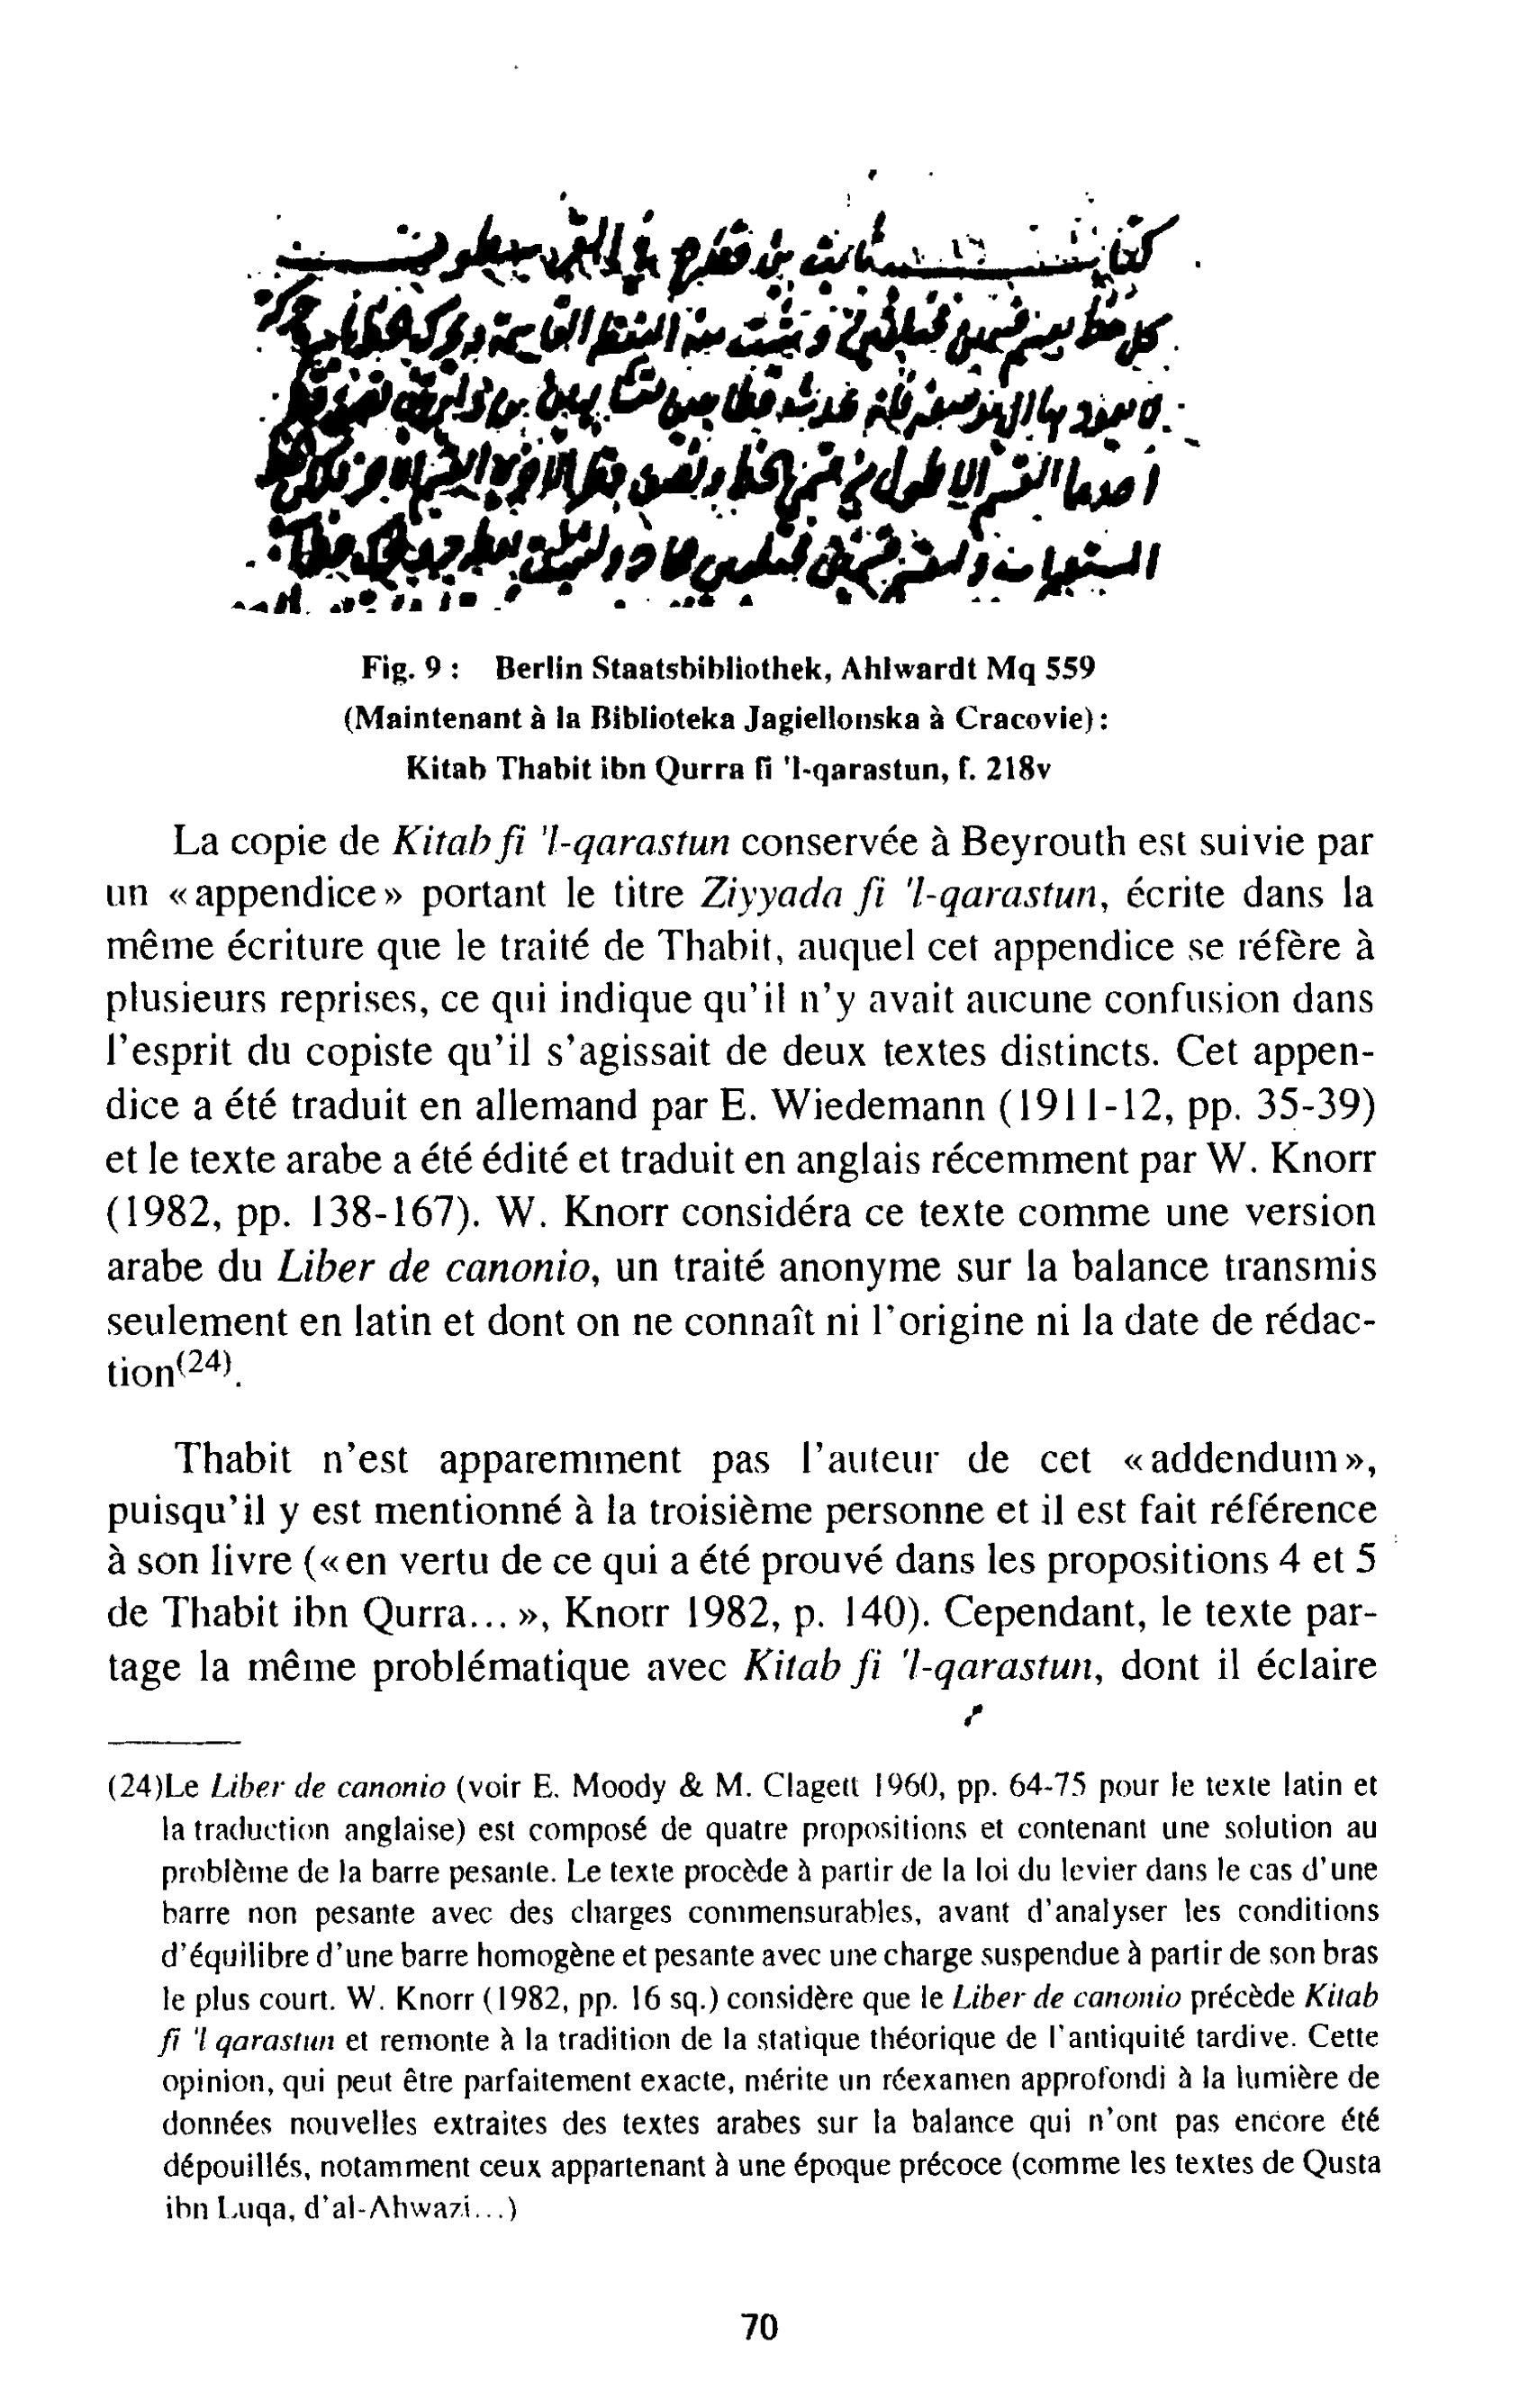 كتاب ثابت بن قرة في القرسطون
Fig. 9 : Berlin Staatsbibliothek, Ahlwardt Mq 559
(Maintenant à la Biblioteka Jagiellonska à Cracovie) :
Kitab Thabit ibn Qurra fi 'l-qarastun, f. 218v
La copie de Kitab fi 'l-qarastun conservée à Beyrouth est suivie par
un « appendice » portant le titre Ziyyada fi 'l-qarastun, écrite dans la
même écriture que le traité de Thabit, auquel cet appendice se réfère à
plusieurs reprises, ce qui indique qu'il n'y avait aucune confusion dans
l'esprit du copiste qu'il s'agissait de deux textes distincts. Cet appen-
dice a été traduit en allemand par E. Wiedemann (1911-12, pp. 35-39)
et le texte arabe a été édité et traduit en anglais récemment par W. Knorr
(1982, pp. 138-167). W. Knorr considéra ce texte comme une version
arabe du Liber de canonio, un traité anonyme sur la balance transmis
seulement en latin et dont on ne connaît ni l'origine ni la date de rédac-
tion(24).
Thabit n'est apparemment pas l'auteur de cet « addendum »,
puisqu'il y est mentionné à la troisième personne et il est fait référence
à son livre (« en vertu de ce qui a été prouvé dans les propositions 4 et 5
de Thabit ibn Qurra... », Knorr 1982, p. 140). Cependant, le texte par-
tage la même problématique avec Kitab fi 'l-qarastun, dont il éclaire
(24)Le Liber de canonio (voir E. Moody & M. Clagett 1960, pp. 64-75 pour le texte latin et
la traduction anglaise) est composé de quatre propositions et contenant une solution au
problème de la barre pesante. Le texte procède à partir de la loi du levier dans le cas d'une
barre non pesante avec des charges commensurables, avant d'analyser les conditions
d'équilibre d'une barre homogène et pesante avec une charge suspendue à partir de son bras
le plus court. W. Knorr (1982, pp. 16 sq.) considère que le Liber de canonio précède Kitab
fi 'l qarastun et remonte à la tradition de la statique théorique de l'antiquité tardive. Cette
opinion, qui peut être parfaitement exacte, mérite un réexamen approfondi à la lumière de
données nouvelles extraites des textes arabes sur la balance qui n'ont pas encore été
dépouillés, notamment ceux appartenant à une époque précoce (comme les textes de Qusta
ibn Luqa, d'al-Ahwazi...)
70